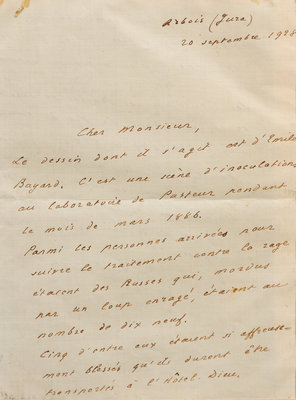 Arbois (Jura)
20 septembre 1928
Cher Monsieur,
Le dessin dont il s'agit est d'Emile
Bayard. C'est une scène d'inoculation
au laboratoire de Pasteur pendant
le mois de mars 1886.
Parmi les personnes arrivées pour
suivre le traitement contre la rage
étaient des Russes qui, mordus
par un loup enragé, étaient au
nombre de dix neuf.
Cinq d'entre eux étaient si affreuse-
ment blessés qu'ils durent être
transportés à l'Hôtel Dieu.